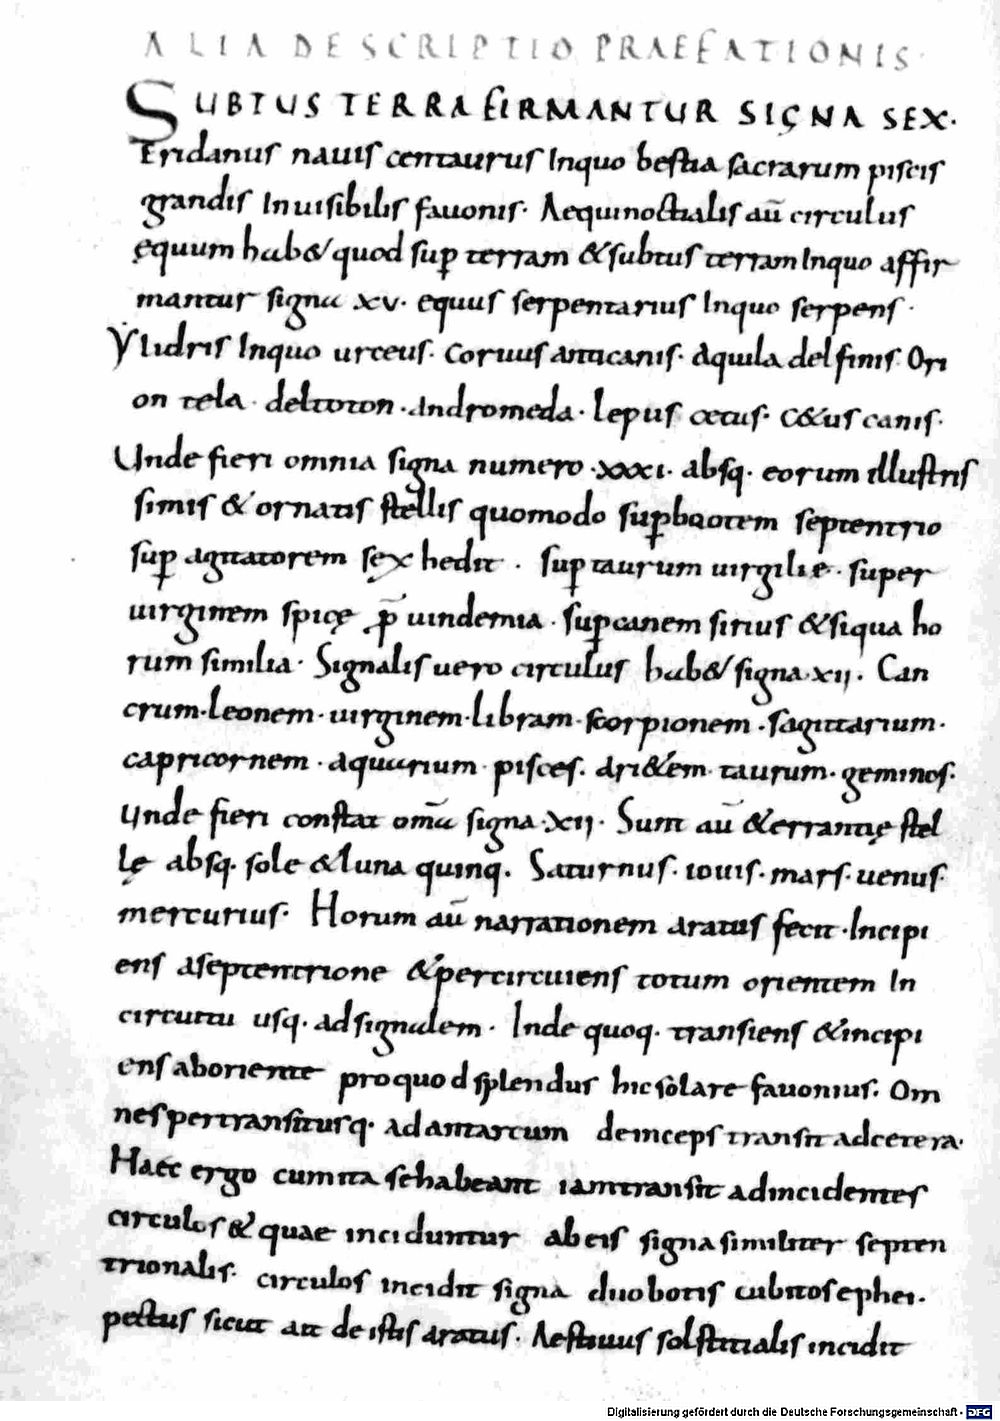 ALIA DESCRIPTIO PRAEFATIONIS.
SUBTUS TERRA FIRMANTUR SIGNA SEX.
Eridanus nauis centaurus Inquo bestia sacrarum piscis
grandis Inuisibilis fauonis. Aequinoctialis aū circulus
ęquum hab& quod sup̄ terram & subtus terram Inquo affir
mantur signa xv. equus serpentarius Inquo serpens.
Ylidris Inquo urceus. Coruus anticanis. Aquila delfinis. Ori
on tela. deltoton. Andromeda. lepus cetus. C&us canis.
Unde fieri omnia signa numero .xxxi. absq. eorum illustris
simis & ornatis stellis quomodo sup̄ bootem septentrio
sup̄ agitatorem sex hedit. sup̄ taurum uirgilię. super
uirginem spicę p̄ uindemia. sup̄ canem sirius & siqua ho
rum similia. Signalis uero circulus hab& signa .xii. Can
crum. leonem. uirginem. libram. scorpionem. sagittarium.
capricornem. aquarium. pisces. ari&em. taurum. geminos.
Unde fieri constat om̄a signa .xii. Sunt aū & errantię stel
lę absq. sole & luna quinq. Saturnus. iouis. mars. uenus.
mercurius. Horum aū narrationem aratus fecit. Incipi
ens aseptentrione & percircuiens totum orientem In
circuitu usq. ad signalem. Inde quoq. transiens & incipi
ens aboriente pro quod splendus hic solare fauonius. Om
nes pertransitusq. ad antarctum deinceps transit ad cetera.
Haec ergo cum ita se habeant iam transit ad incidentes
circulos & quae inciduntur ab eis signa similiter septen
trionalis. circulos incidit signa duo botis cubitos ephei.
pectus sicut ait de istis aratus. Aestiuus solstitialis incidit
Digitalisierung gefördert durch die Deutsche Forschungsgemeinschaft - DFG